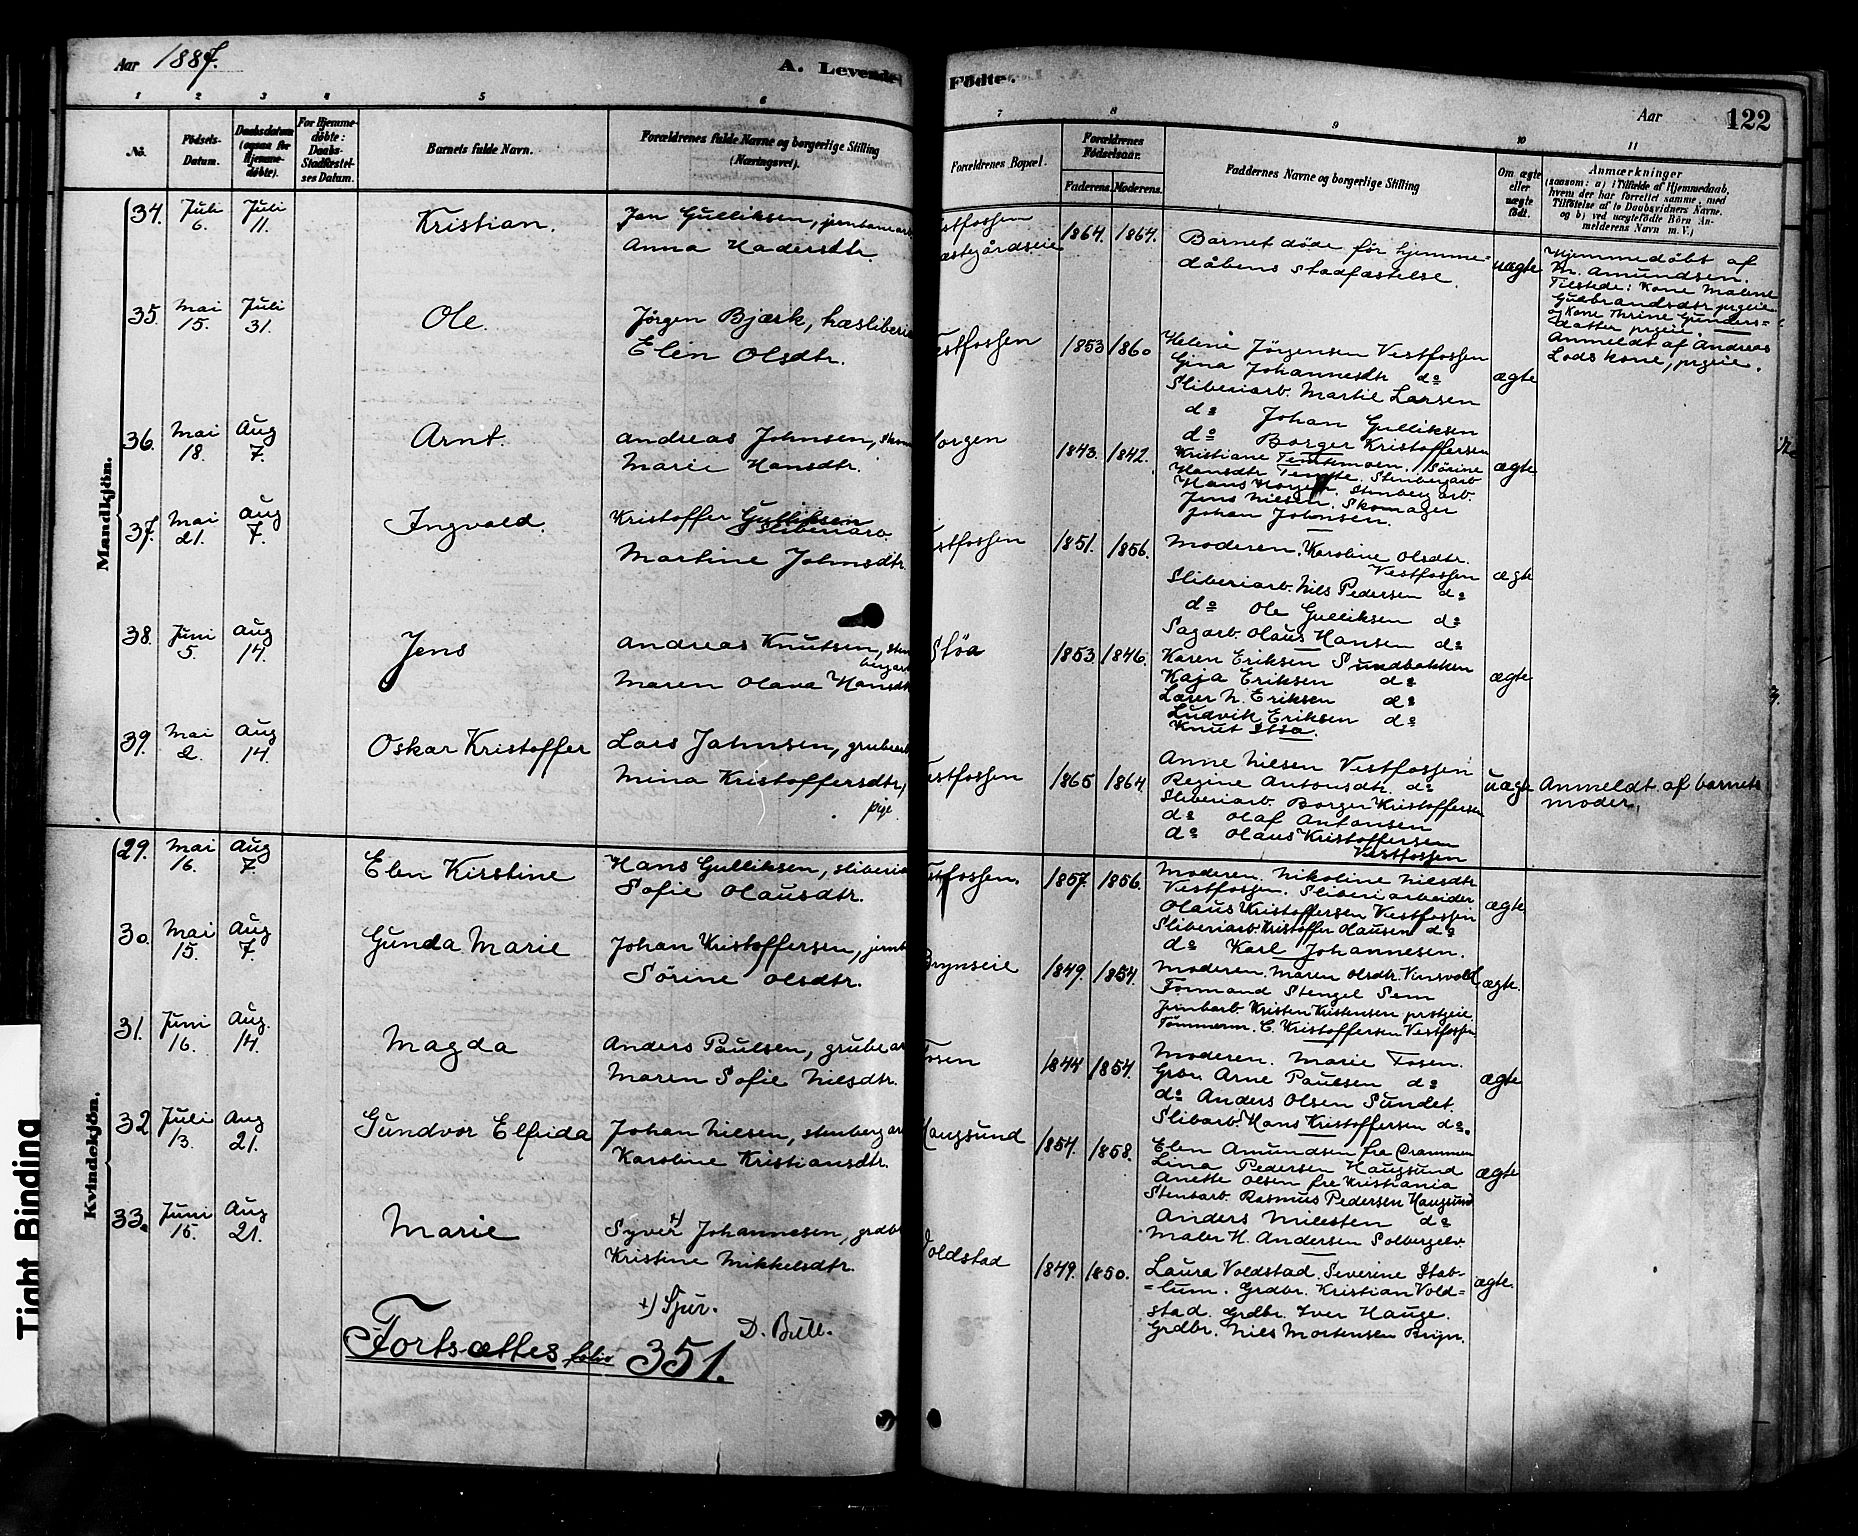 Aar 1887.
A. Levende Fødte.
Aar
122
1 2 3 4 5 6 7 8 9 10 11
No.
Fødsels-Datum.
Daabsdatum (ogsaa for Hjemme-døbte).
For Hjemme-døbte: Daabs-Stadfæstel-ses Datum.
Barnets fulde Navn.
Forældrenes fulde Navne og borgerlige Stilling (Næringsvei).
Forældrenes Bopæl.
Forældrenes Fødselsaar.
Faderens. Moderens.
Faddernes Navne og borgerlige Stilling
Om ægte eller uægte født.
Anmærkninger
(saasom: a) i Tilfælde af Hjemmedaab,
hvem der har forrettet samme, med
Tilføielse af to Daabsvidners Navne,
og b) ved uægtefødte Børn An-
melderens Navn m. V.)
Mandkjön.
34. Juli 6. Juli 11. Kristian. Jon Gulliksen, jernbanearb
Anna Hadersdtr.
1864. 1864.
Barnet døde før hjemme-
dåbens stadfæstelse.
uægte
Hjemmedøbt af
Amundsen.
Tilstede: Kone Malene
Gulbrandsdtr prgeie
og Kone Thrine Gunders=
datter prgeie.
Anmeldt af Andreas
Lods kone, prgeie.
35. Mai 15. Juli 31. Ole. Jørgen Bjærk, træsliberia
Elen Olsdtr.
estfossen 1853 1860
Helene Jørgensen Vestfossen
Gina Johannesdtr do
Sliberiarb. Martie Larsen
do Johan Gulliksen
do Borger Kristoffersen
ægte
36. Mai 18. Aug 7. Arnt. Andreas Johnsen, skom
Marie Hansdtr.
orgen 1843. 1842.
Kristiane Temtemoen. Sørine
Hansdtr Temte. Stenbergarb
Hans Horgen. Stenbergarb.
Jens Nilsen. Skomager
Johan Johnsen.
ægte
37. Mai 21. Aug 7. Ingvald. Kristoffer Gulliksen
Sliberiarb.
Martine Johnsdtr.
estfossen 1851. 1856.
Moderen. Karoline Olsdtr.
Vestfossen
Sliberiarb. Nils Pedersen do
do Ole Gulliksen do
Sagarb. Olaus Hansen do
ægte
38. Juni 5. Aug 14. Jens Andreas Knutsen, sten
bergarb
Maren Olava Hansdtr
Støa 1853 1846.
Karen Eriksen Sundbakken
Kaja Eriksen do
Lærer N. Eriksen do
Ludvik Eriksen do
Knut Støa.
ægte
39. Mai 2. Aug 14. Oskar Kristoffer Lars Johnsen, grubearb
Mina Kristoffersdtr,
pige.
estfossen 1865 1864.
Anne Nilsen Vestfossen
Regine Antonsdtr. do
Sliberiarb. Borger Kristoffersen
do Olaf Antonsen
do Olaus Kristoffersen
Vestfossen
uægte
Anmeldt af barnets
moder,
Kvindekjön.
29. Mai 16. Aug 7. Elen Kirstine Hans Gulliksen, sliberia
Sofie Olausdtr.
estfossen. 1857. 1856.
Moderen. Nikoline Nilsdtr
Vestfossen. Sliberiarbeider
Olaus Kristoffersen Vestfossen
Sliberiarb. Kristoffer Olausen do
do Karl Johannesen.
ægte
30. Mai 15. Aug 7. Gunda Marie Johan Kristoffersen, jernb
Sørine Olsdtr.
Brynseie 1849. 1854.
Moderen. Maren Olsdtr. Vinsvold
Formand Stengel Sem
Jernbarb. Kristen Kristensen prstgeie.
Tømmerm. C. Kristoffersen Vestfossen
ægte.
31. Juni 16. Aug. 14. Magda Anders Paulsen, grubear
Maren Sofie Nilsdtr.
Fosen 1844 1854.
Moderen. Marie Fosen.
Grbr. Arne Paulsen do
do Anders Olsen Sundet.
Slibarb. Hans Kristoffersen do.
ægte
32 Juli 13. Aug 21. Gundvor Elfrida Johan Nilsen, stenbergar
Karoline Kristiansdtr.
Haugsund 1854. 1858.
Elen Amundsen fra Drammen
Lina Pedersen Haugsund
Anette Olsen fra Kristiania
Stenbarb. Rasmus Pedersen Haugsund
Anders Milesten do
Maler H. Andersen Solbergelv.
ægte
33. Juni 15. Aug 21. Marie Syver +) Johannesen, grdbr
Kristine Mikkelsdtr.
Voldstad 1849. 1850.
Laura Voldstad. Severine Stab-
=lum. Grdbr. Kristian Vold=
stad. Grdbr. Iver Hauge.
Grdbr. Nils Mortensen Bryn.
ægte.
+) Sjur.
D. Bull.
Fortsættes folio 351.
Tight Binding